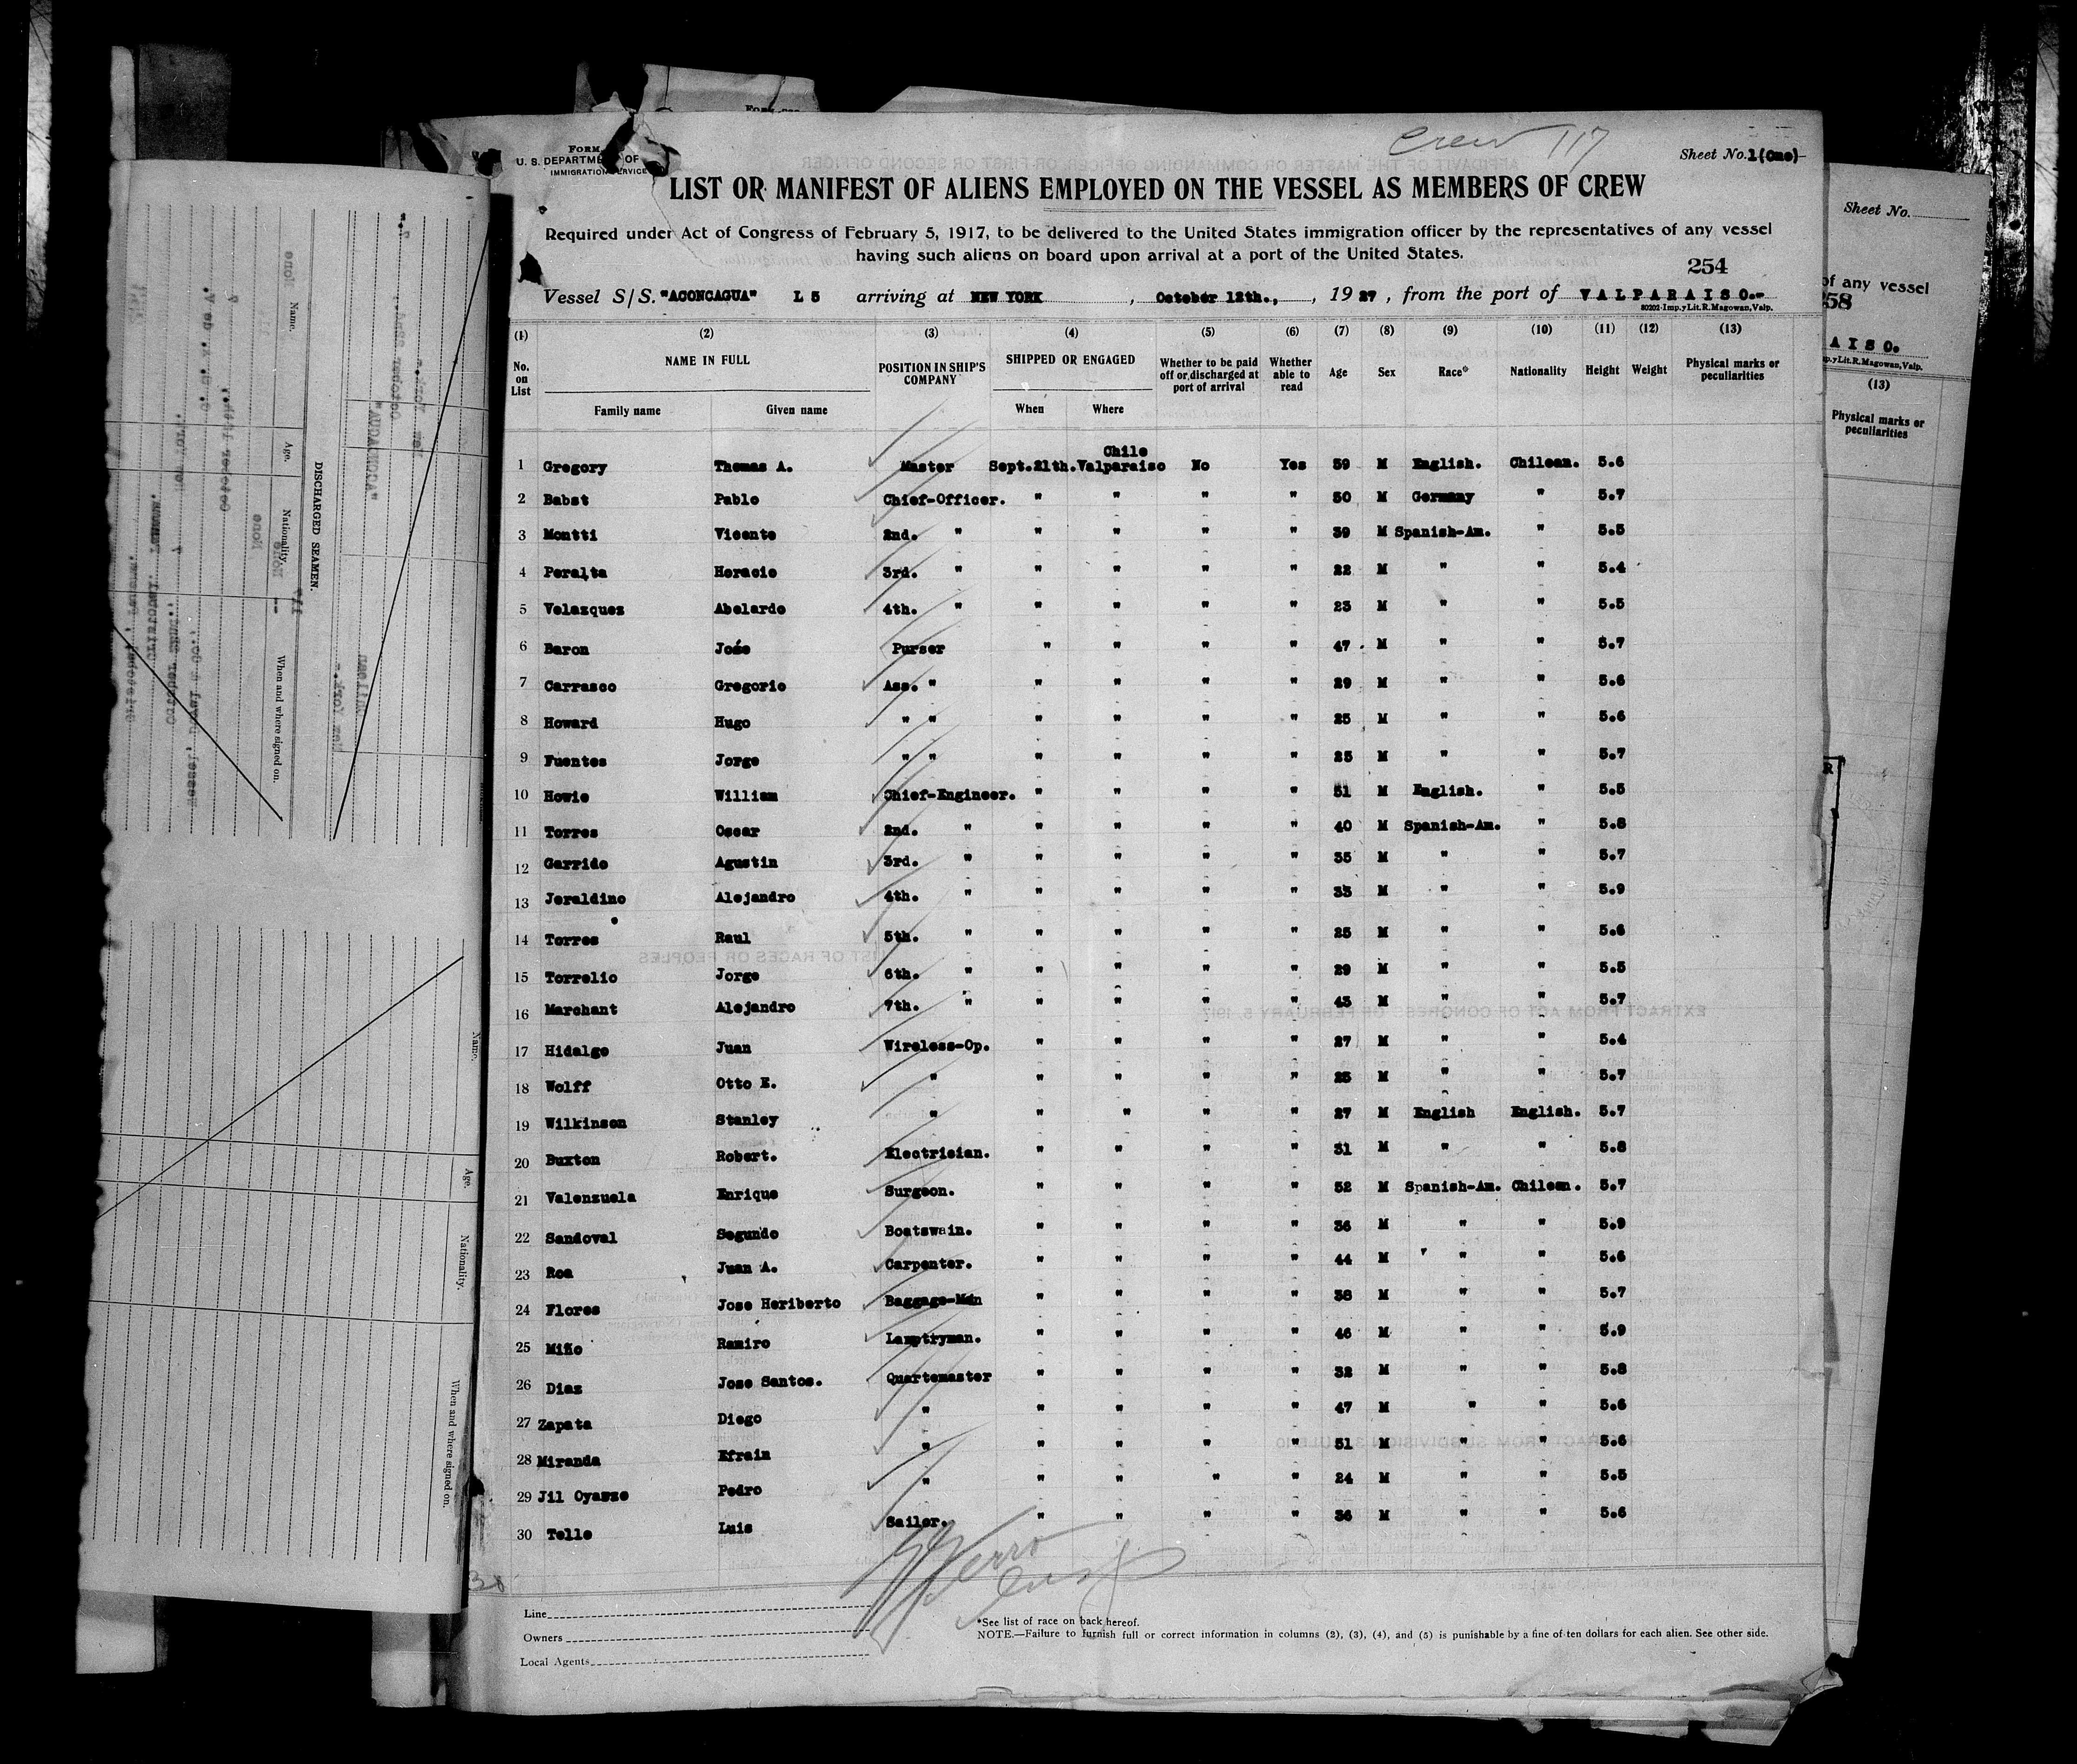 Crew 117
FORM
U. S. DEPARTMENT OF
IMMIGRATION SERVICE
Sheet No. 1(One)-
LIST OR MANIFEST OF ALIENS EMPLOYED ON THE VESSEL AS MEMBERS OF CREW
Required under Act of Congress of February 5, 1917, to be delivered to the United States immigration officer by the representatives of any vessel
having such aliens on board upon arrival at a port of the United States.
254
Vessel S/S. "ACONCAGUA" L 5 arriving at NEW YORK, October 12th., 1927, from the port of VALPARAISO.-
80202-Imp.yLit.R.Magowan,Valp.
(1) (2) (3) (4) (5) (6) (7) (8) (9) (10) (11) (12) (13)
No. on List NAME IN FULL POSITION IN SHIP'S COMPANY SHIPPED OR ENGAGED Whether to be paid off or discharged at port of arrival Whether able to read Age Sex Race* Nationality Height Weight Physical marks or peculiarities
Family name Given name When Where
Chile
1 Gregory Thomas A. Master Sept.21th. Valparaiso No Yes 59 M English. Chilean. 5.6
2 Babst Pablo Chief-Officer. " " " " 50 M Germany " 5.7
3 Montti Vicente 2nd. " " " " " 39 M Spanish-Am. " 5.5
4 Peralta Horacio 3rd. " " " " " 22 M " " 5.4
5 Velazquez Abelardo 4th. " " " " " 23 M " " 5.5
6 Baron José Purser " " " " 47 M " " 5.7
7 Carrasco Gregorio Ass. " " " " " 29 M " " 5.6
8 Howard Hugo " " " " " " 25 M " " 5.6
9 Fuentes Jorge " " " " " " 25 M " " 5.7
10 Howie William Chief-Engineer. " " " " 51 M English. " 5.5
11 Torres Oscar 2nd. " " " " " 40 M Spanish-Am. " 5.8
12 Garrido Agustin 3rd. " " " " " 35 M " " 5.7
13 Jeraldino Alejandro 4th. " " " " " 33 M " " 5.9
14 Torres Raul 5th. " " " " " 25 M " " 5.6
15 Torrelio Jorge 6th. " " " " " 29 M " " 5.5
16 Marchant Alejandro 7th. " " " " " 43 M " " 5.7
17 Hidalgo Juan Wireless-Op. " " " " 27 M " " 5.4
18 Wolff Otto E. " " " " " 25 M " " 5.7
19 Wilkinson Stanley " " " " " 27 M English English. 5.7
20 Buxton Robert. Electrician. " " " " 31 M " " 5.8
21 Valenzuela Enrique Surgeon. " " " " 52 M Spanish-Am. Chilean. 5.7
22 Sandoval Segundo Boatswain. " " " " 36 M " " 5.9
23 Roa Juan A. Carpenter. " " " " 44 M " " 5.6
24 Flores Jose Heriberto Baggage-Man " " " " 38 M " " 5.7
25 Miño Ramiro Lamptryman. " " " " 46 M " " 5.9
26 Diaz Jose Santos. Quartemaster " " " " 32 M " " 5.8
27 Zapata Diego " " " " " 47 M " " 5.6
28 Miranda Efrain " " " " " 51 M " " 5.6
29 Jil Oyarzo Pedro " " " " " 24 M " " 5.5
30 Tello Luis Sailor. " " " " 36 M " " 5.6
Line
Owners
Local Agents
*See list of race on back hereof.
NOTE.—Failure to furnish full or correct information in columns (2), (3), (4), and (5) is punishable by a fine of ten dollars for each alien. See other side.
Sheet No.
of any vessel
258
AISO.
mp.yLit.R.Magowan,Valp.
(13)
Physical marks or
peculiarities
DISCHARGED SEAMEN.
Name. Age. Nationality. When and where signed on.
None
Name. Age. Nationality. When and where signed on.